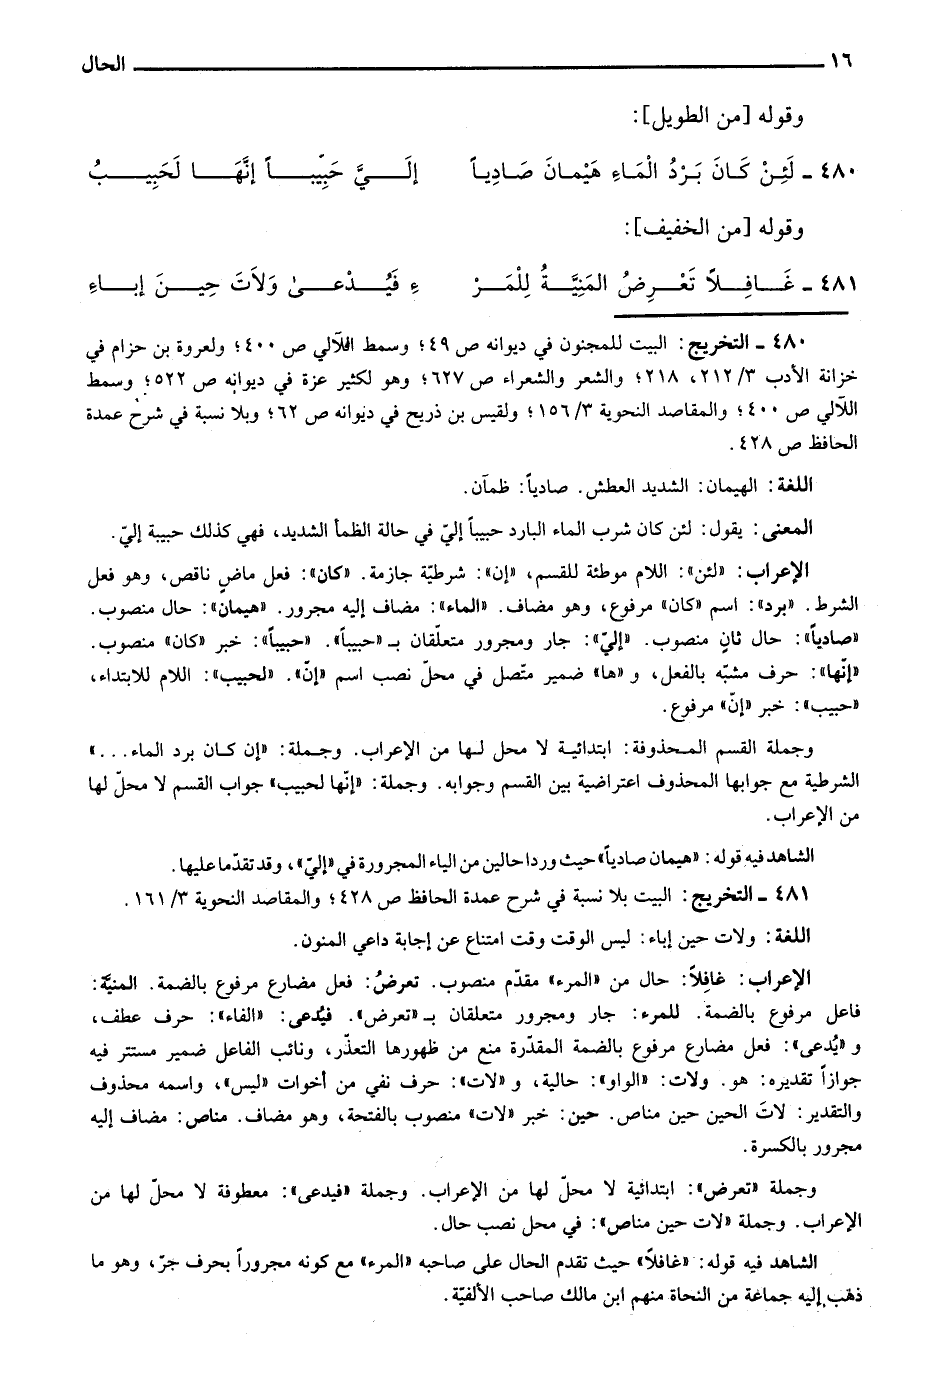 ١٦ الحال
وقوله [من الطويل]:
٤٨٠ ـ لَئِنْ كَانَ بَرْدُ الْمَاءِ هَيْمانَ صَادِياً إلَــيَّ حَبِيْبــاً إنَّهَــا لَحَبِيــبُ
وقوله [من الخفيف]:
٤٨١ ـ غَـافِـلاً تَعْـرِضُ المَنِيَّـةُ لِلْمَـرْ ءِ فَيُـدْعـىٰ وَلاَتَ حِيـنَ إبـاءِ
٤٨٠ ـ التخريج: البيت للمجنون في ديوانه ص ٤٩؛ وسمط اللآلي ص ٤٠٠؛ ولعروة بن حزام في
خزانة الأدب ٣/ ٢١٢، ٢١٨؛ والشعر والشعراء ص ٦٢٧؛ وهو لكثير عزة في ديوانه ص ٥٢٢؛ وسمط
اللآلي ص ٤٠٠؛ والمقاصد النحوية ٣/ ١٥٦؛ ولقيس بن ذريح في ديوانه ص ٦٢؛ وبلا نسبة في شرح عمدة
الحافظ ص ٤٢٨.
اللغة: الهيمان: الشديد العطش. صادياً: ظمآن.
المعنى: يقول: لئن كان شرب الماء البارد حبيباً إليّ في حالة الظمأ الشديد، فهي كذلك حبيبة إليّ.
الإعراب: «لئن»: اللام موطئة للقسم، «إن»: شرطيّة جازمة. «كان»: فعل ماضٍ ناقص، وهو فعل
الشرط. «برد»: اسم «كان» مرفوع، وهو مضاف. «الماء»: مضاف إليه مجرور. «هيمان»: حال منصوب.
«صادياً»: حال ثانٍ منصوب. «إليّ»: جار ومجرور متعلّقان بـ«حبيباً». «حبيباً»: خبر «كان» منصوب.
«إنّها»: حرف مشبّه بالفعل، و«ها» ضمير متّصل في محلّ نصب اسم «إنّ». «لحبيب»: اللام للابتداء،
«حبيب»: خبر «إنّ» مرفوع.
وجملة القسم المحذوفة: ابتدائية لا محل لها من الإعراب. وجملة: «إن كان برد الماء...»
الشرطية مع جوابها المحذوف اعتراضية بين القسم وجوابه. وجملة: «إنّها لحبيب» جواب القسم لا محلّ لها
من الإعراب.
الشاهد فيه قوله: «هيمان صادياً» حيث وردا حالين من الياء المجرورة في «إليّ»، وقد تقدّما عليها.
٤٨١ ـ التخريج: البيت بلا نسبة في شرح عمدة الحافظ ص ٤٢٨؛ والمقاصد النحوية ٣/ ١٦١.
اللغة: ولات حين إباء: ليس الوقت وقت امتناع عن إجابة داعي المنون.
الإعراب: غافِلاً: حال من «المرء» مقدّم منصوب. تعرضُ: فعل مضارع مرفوع بالضمة. المنيَّة:
فاعل مرفوع بالضمة. للمرء: جار ومجرور متعلقان بـ«تعرض». فيُدعى: «الفاء»: حرف عطف،
و«يُدعى»: فعل مضارع مرفوع بالضمة المقدّرة منع من ظهورها التعذّر، ونائب الفاعل ضمير مستتر فيه
جوازاً تقديره: هو. ولات: «الواو»: حالية، و«لات»: حرف نفي من أخوات «ليس»، واسمه محذوف
والتقدير: لاتَ الحين حين مناص. حين: خبر «لات» منصوب بالفتحة، وهو مضاف. مناص: مضاف إليه
مجرور بالكسرة.
وجملة «تعرض»: ابتدائية لا محلّ لها من الإعراب. وجملة «فيدعى»: معطوفة لا محلّ لها من
الإعراب. وجملة «لات حين مناص»: في محل نصب حال.
الشاهد فيه قوله: «غافلاً» حيث تقدم الحال على صاحبه «المرء» مع كونه مجروراً بحرف جرّ، وهو ما
ذهب إليه جماعة من النحاة منهم ابن مالك صاحب الألفيّة.